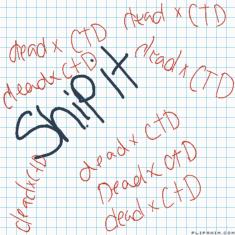 dead x CTD
dead x CTD
dead x CTD
dead x CTD
Ship It
dead x CTD
Dead x CTD
dead x CTD
dead x CTD
FLIPANIM.COM